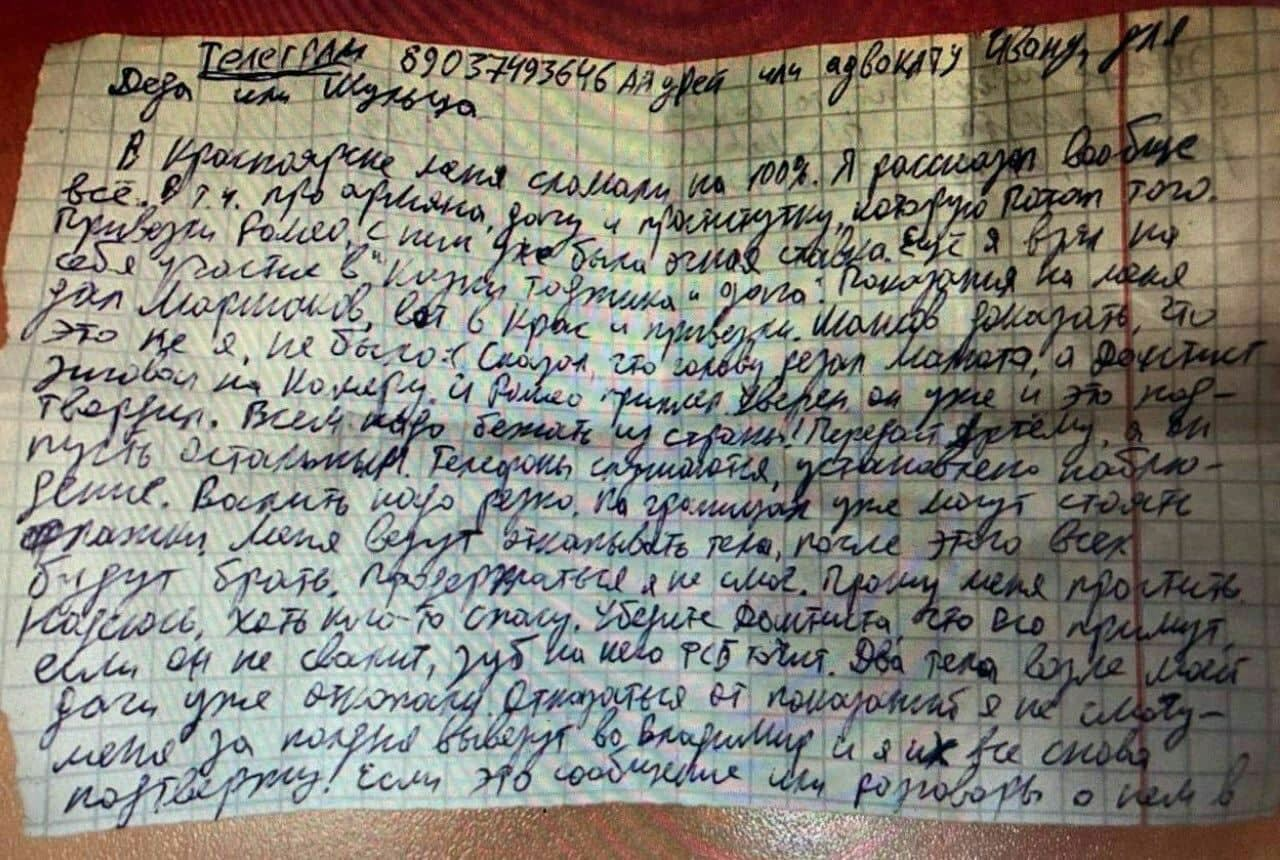 Телеграм 89037493646 Андрей или адвокату Ивану, для
Деда или Шульца
В Красноярске меня сломали на 100%. Я рассказал вообще
всё. В т.ч. про армяна, дачу и проститутку, которую потом того.
Привезли Ромео, с ним уже была очная ставка. Ещё я взял на
себя участие в "Казни таджика и дага". Показания на меня
дал Маршаков, вот в Крас и привезли. Шансов доказать, что
это не я, не было:( Сказал, что голову резал Матата, а Дантист
зиговал на камеру. И Ромео приплел. Уверен он уже и это под-
твердил. Всем надо бежать из страны! Передай Артёму, а он
пусть остальным. Телефоны слушаются, установлено наблю-
дение. Валить надо резко. На границах уже могут стоять
флажки. Меня везут откапывать тела, после этого всех
будут брать. Продержаться я не смог. Прошу меня простить.
Надеюсь, хоть кого-то спасу. Уберите Дантиста, 100% его примут,
если он не свалит, зуб на него ФСБ точит. Два тела возле моей
дачи уже откопали. Отказаться от показаний я не смогу -
меня за полдня вывезут во Владимир и я их все снова
подтвержу! Если это сообщение или разговоры о нем в